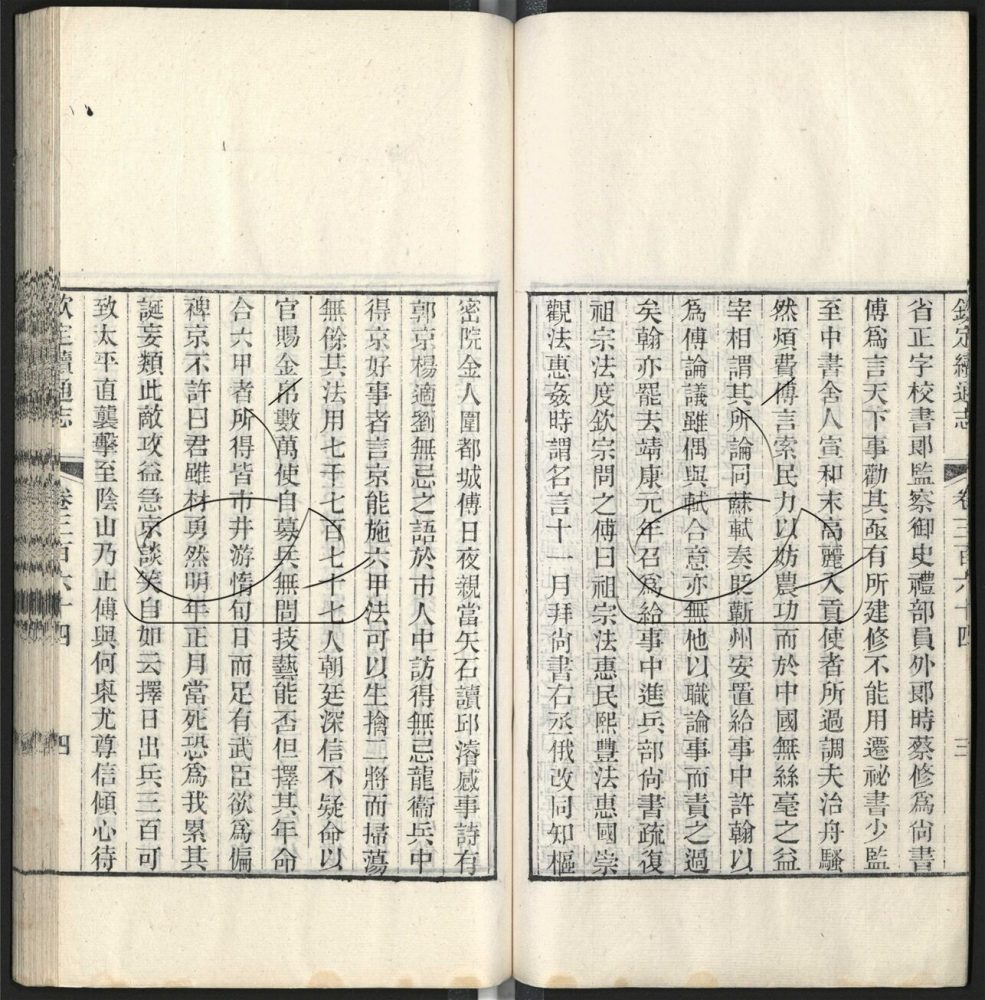 欽定續通志 卷三百六十四 三
省正字校書郎監察御史禮部員外郎時蔡修爲尚書
傅爲言天下事勸其亟有所建修不能用遷祕書少監
至中書舍人宣和末高麗入貢使者所過調夫治舟騷
然煩費傅言索民力以妨農功而於中國無絲毫之益
宰相謂其所論同蘇軾奏貶蘄州安置給事中許翰以
爲傅論議雖偶與軾合意亦無他以職論事而責之過
矣翰亦罷去靖康元年召爲給事中進兵部尚書疏復
祖宗法度欽宗問之傅曰祖宗法惠民熙豐法惠國崇
觀法惠姦時謂名言十一月拜尚書右丞俄改同知樞
密院金人圍都城傅日夜親當矢石讀邱濬感事詩有
郭京楊適劉無忌之語於市人中訪得無忌龍衞兵中
得京好事者言京能施六甲法可以生擒二將而掃蕩
無餘其法用七千七百七十七人朝廷深信不疑命以
官賜金帛數萬使自募兵無問技藝能否但擇其年命
合六甲者所得皆市井游惰旬日而足有武臣欲爲偏
裨京不許曰君雖材勇然明年正月當死恐爲我累其
誕妄類此敵攻益急京談笑自如云擇日出兵三百可
致太平直襲擊至陰山乃止傅與何㮚尤尊信傾心待
欽定續通志 卷三百六十四 四